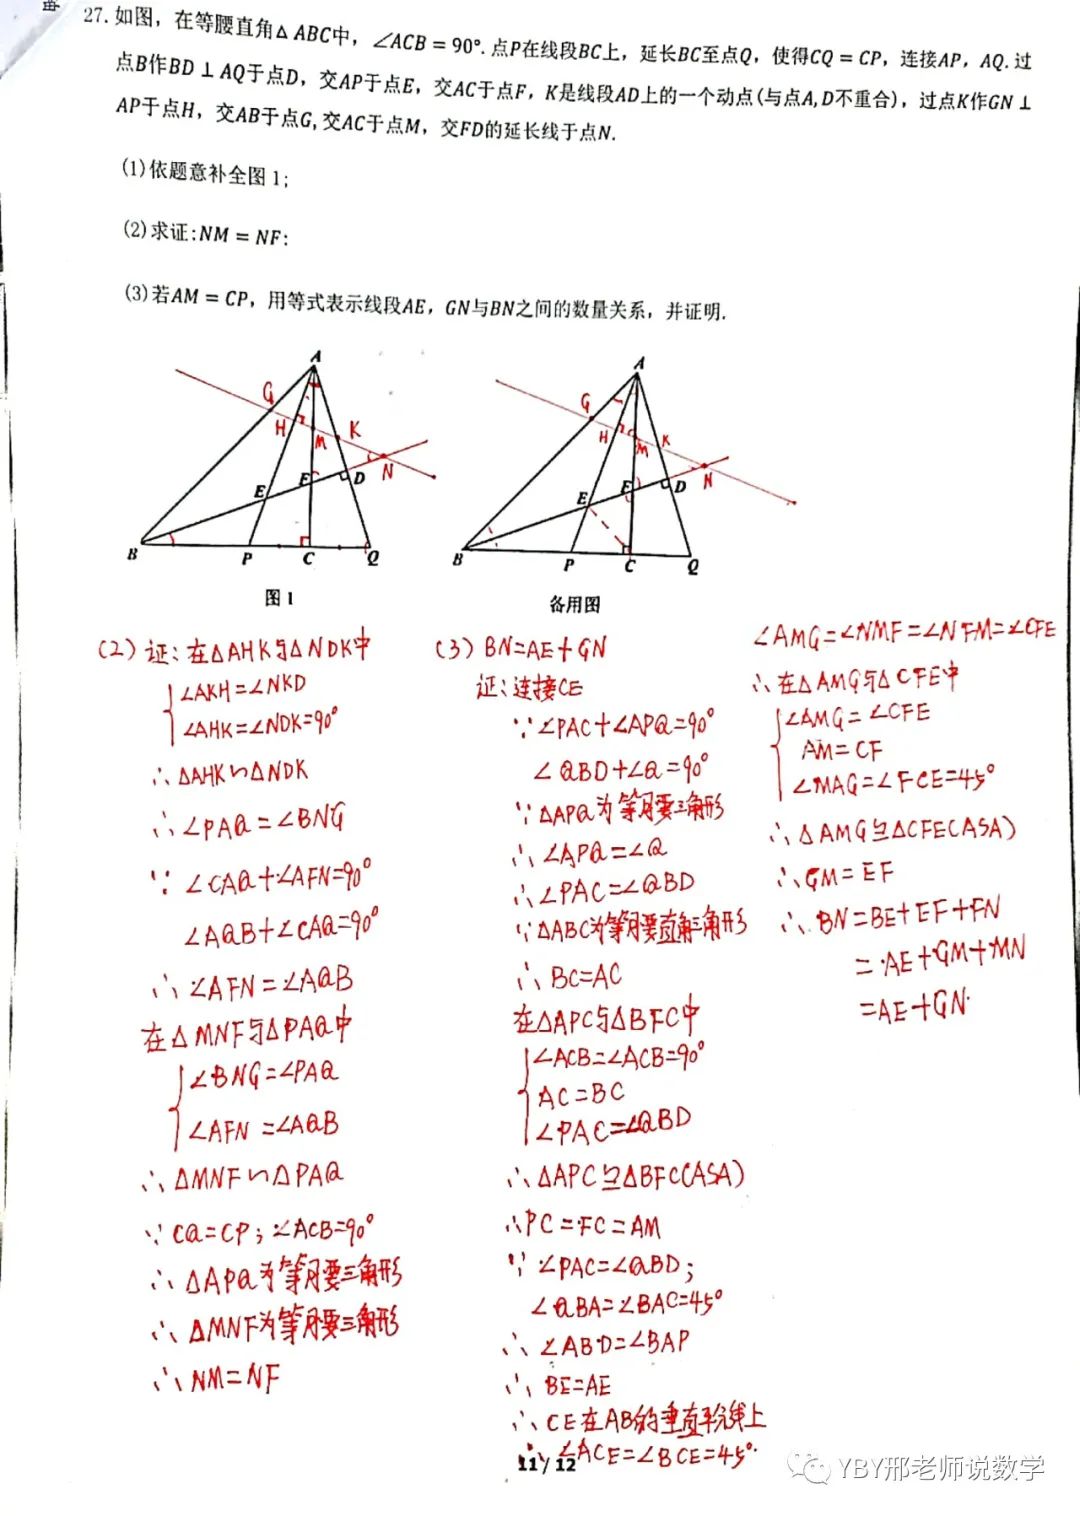 27.如图，在等腰直角△ABC中，∠ACB=90°.点P在线段BC上，延长BC至点Q，使得CQ=CP，连接AP，AQ.过
点B作BD⊥AQ于点D，交AP于点E，交AC于点F，K是线段AD上的一个动点(与点A,D不重合)，过点K作GN⊥
AP于点H，交AB于点G,交AC于点M，交FD的延长线于点N.
(1)依题意补全图1;
(2)求证:NM=NF:
(3)若AM=CP，用等式表示线段AE，GN与BN之间的数量关系，并证明.
A
G
H
M
K
N
E
F
D
B
P
C
Q
图1
A
G
H
M
K
N
E
F
D
B
P
C
Q
备用图
(2) 证:在△AHK与△NDK中
∠AKH=∠NKD
∠AHK=∠NDK=90°
∴△AHK∽△NDK
∴∠PAQ=∠BNG
∵∠CAQ+∠AFN=90°
∠AQB+∠CAQ=90°
∴∠AFN=∠AQB
在△MNF与△PAQ中
∠BNG=∠PAQ
∠AFN=∠AQB
∴△MNF∽△PAQ
∵CQ=CP;∠ACB=90°
∴△APQ为等月要三角形
∴△MNF为等月要三角形
∴NM=NF
(3) BN=AE+GN
证:连接CE
∵∠PAC+∠APQ=90°
∠QBD+∠Q=90°
∵△APQ为等月要三角形
∴∠APQ=∠Q
∴∠PAC=∠QBD
∵△ABC为等月要直角三角形
∴BC=AC
在△APC与△BFC中
∠ACB=∠ACB=90°
AC=BC
∠PAC=∠QBD
∴△APC≌△BFC(ASA)
∴PC=FC=AM
∵∠PAC=∠QBD;
∠QBA=∠BAC=45°
∴∠ABD=∠BAP
∴BE=AE
∴CE在AB的垂直平分线上
∴∠ACE=∠BCE=45°.
∠AMG=∠NMF=∠NFM=∠CFE
∴在△AMG与△CFE中
∠AMG=∠CFE
AM=CF
∠MAG=∠FCE=45°
∴△AMG≌△CFE(ASA)
∴GM=EF
∴BN=BE+EF+FN
=AE+GM+MN
=AE+GN.
11/12
YBY邢老师说数学